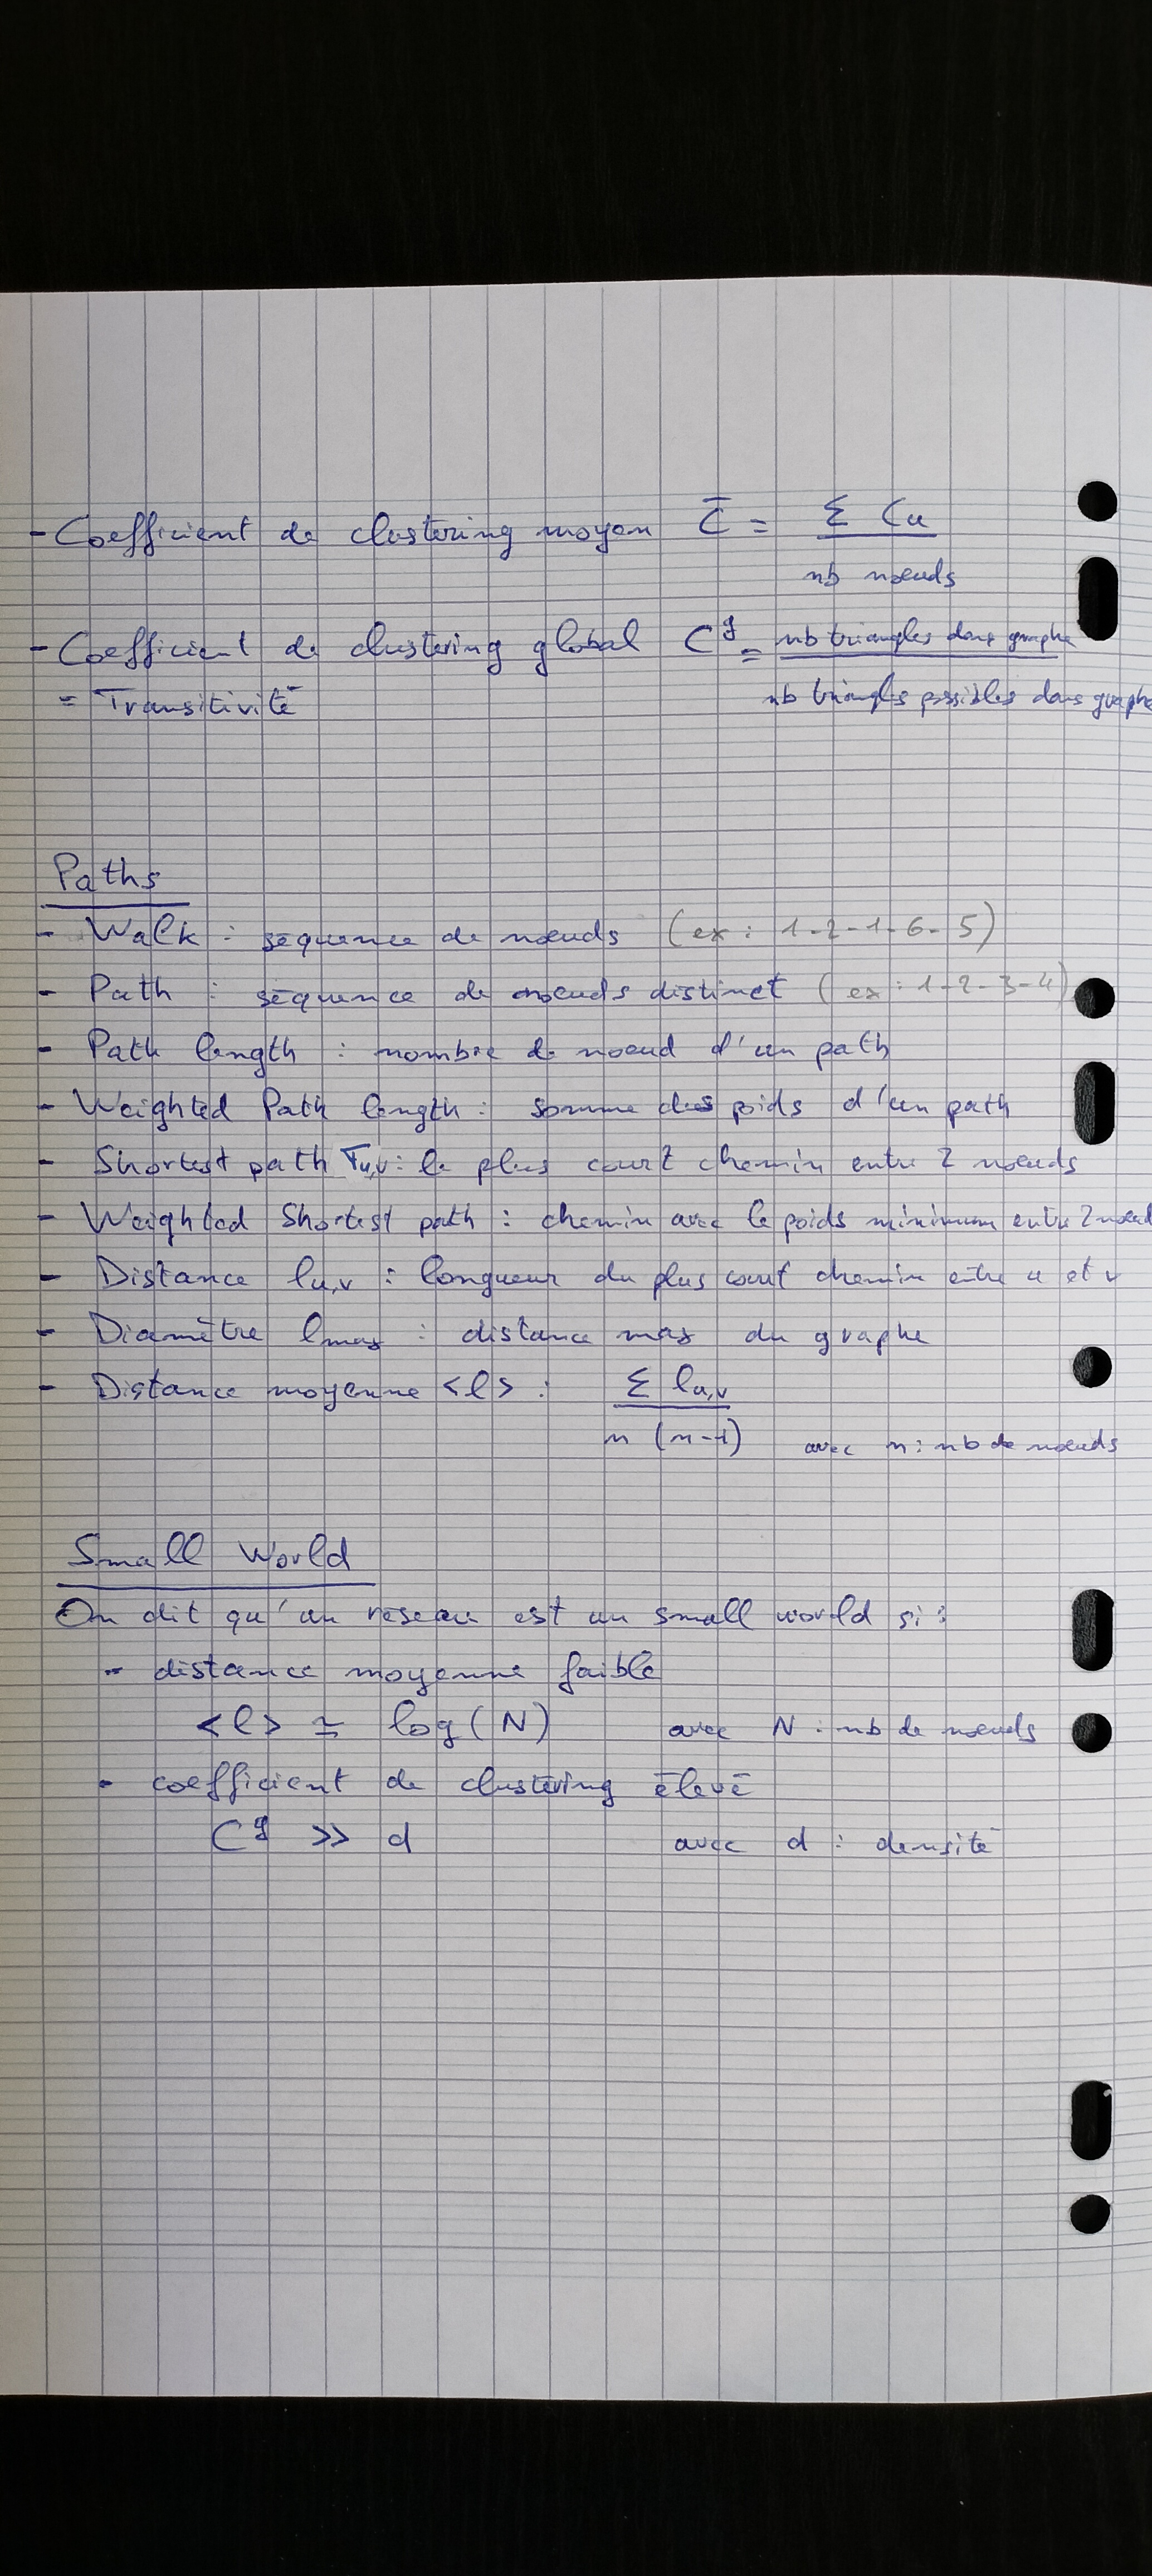 - Coefficient de clustering moyen C̄ = Σ Cu
nb noeuds
- Coefficient de clustering global C^g = nb triangles dans graphe
= Transitivité nb triangles possibles dans graphe
Paths
- Walk : séquence de noeuds (ex : 1-2-1-6-5)
- Path : séquence de noeuds distinct (ex : 1-2-3-4)
- Path length : nombre de noeud d'un path
- Weighted Path length : somme des poids d'un path
- Shortest path Tu,v : le plus court chemin entre 2 noeuds
- Weighted Shortest path : chemin avec le poids minimum entre 2 noeud
- Distance lu,v : longueur du plus court chemin entre u et v
- Diamètre lmax : distance max du graphe
- Distance moyenne <l> : Σ lu,v
n (n-1) avec n : nb de noeuds
Small World
On dit qu'un réseau est un small world si :
- distance moyenne faible
<l> ≃ log(N) avec N : nb de noeuds
- coefficient de clustering élevé
C^g >> d avec d : densité